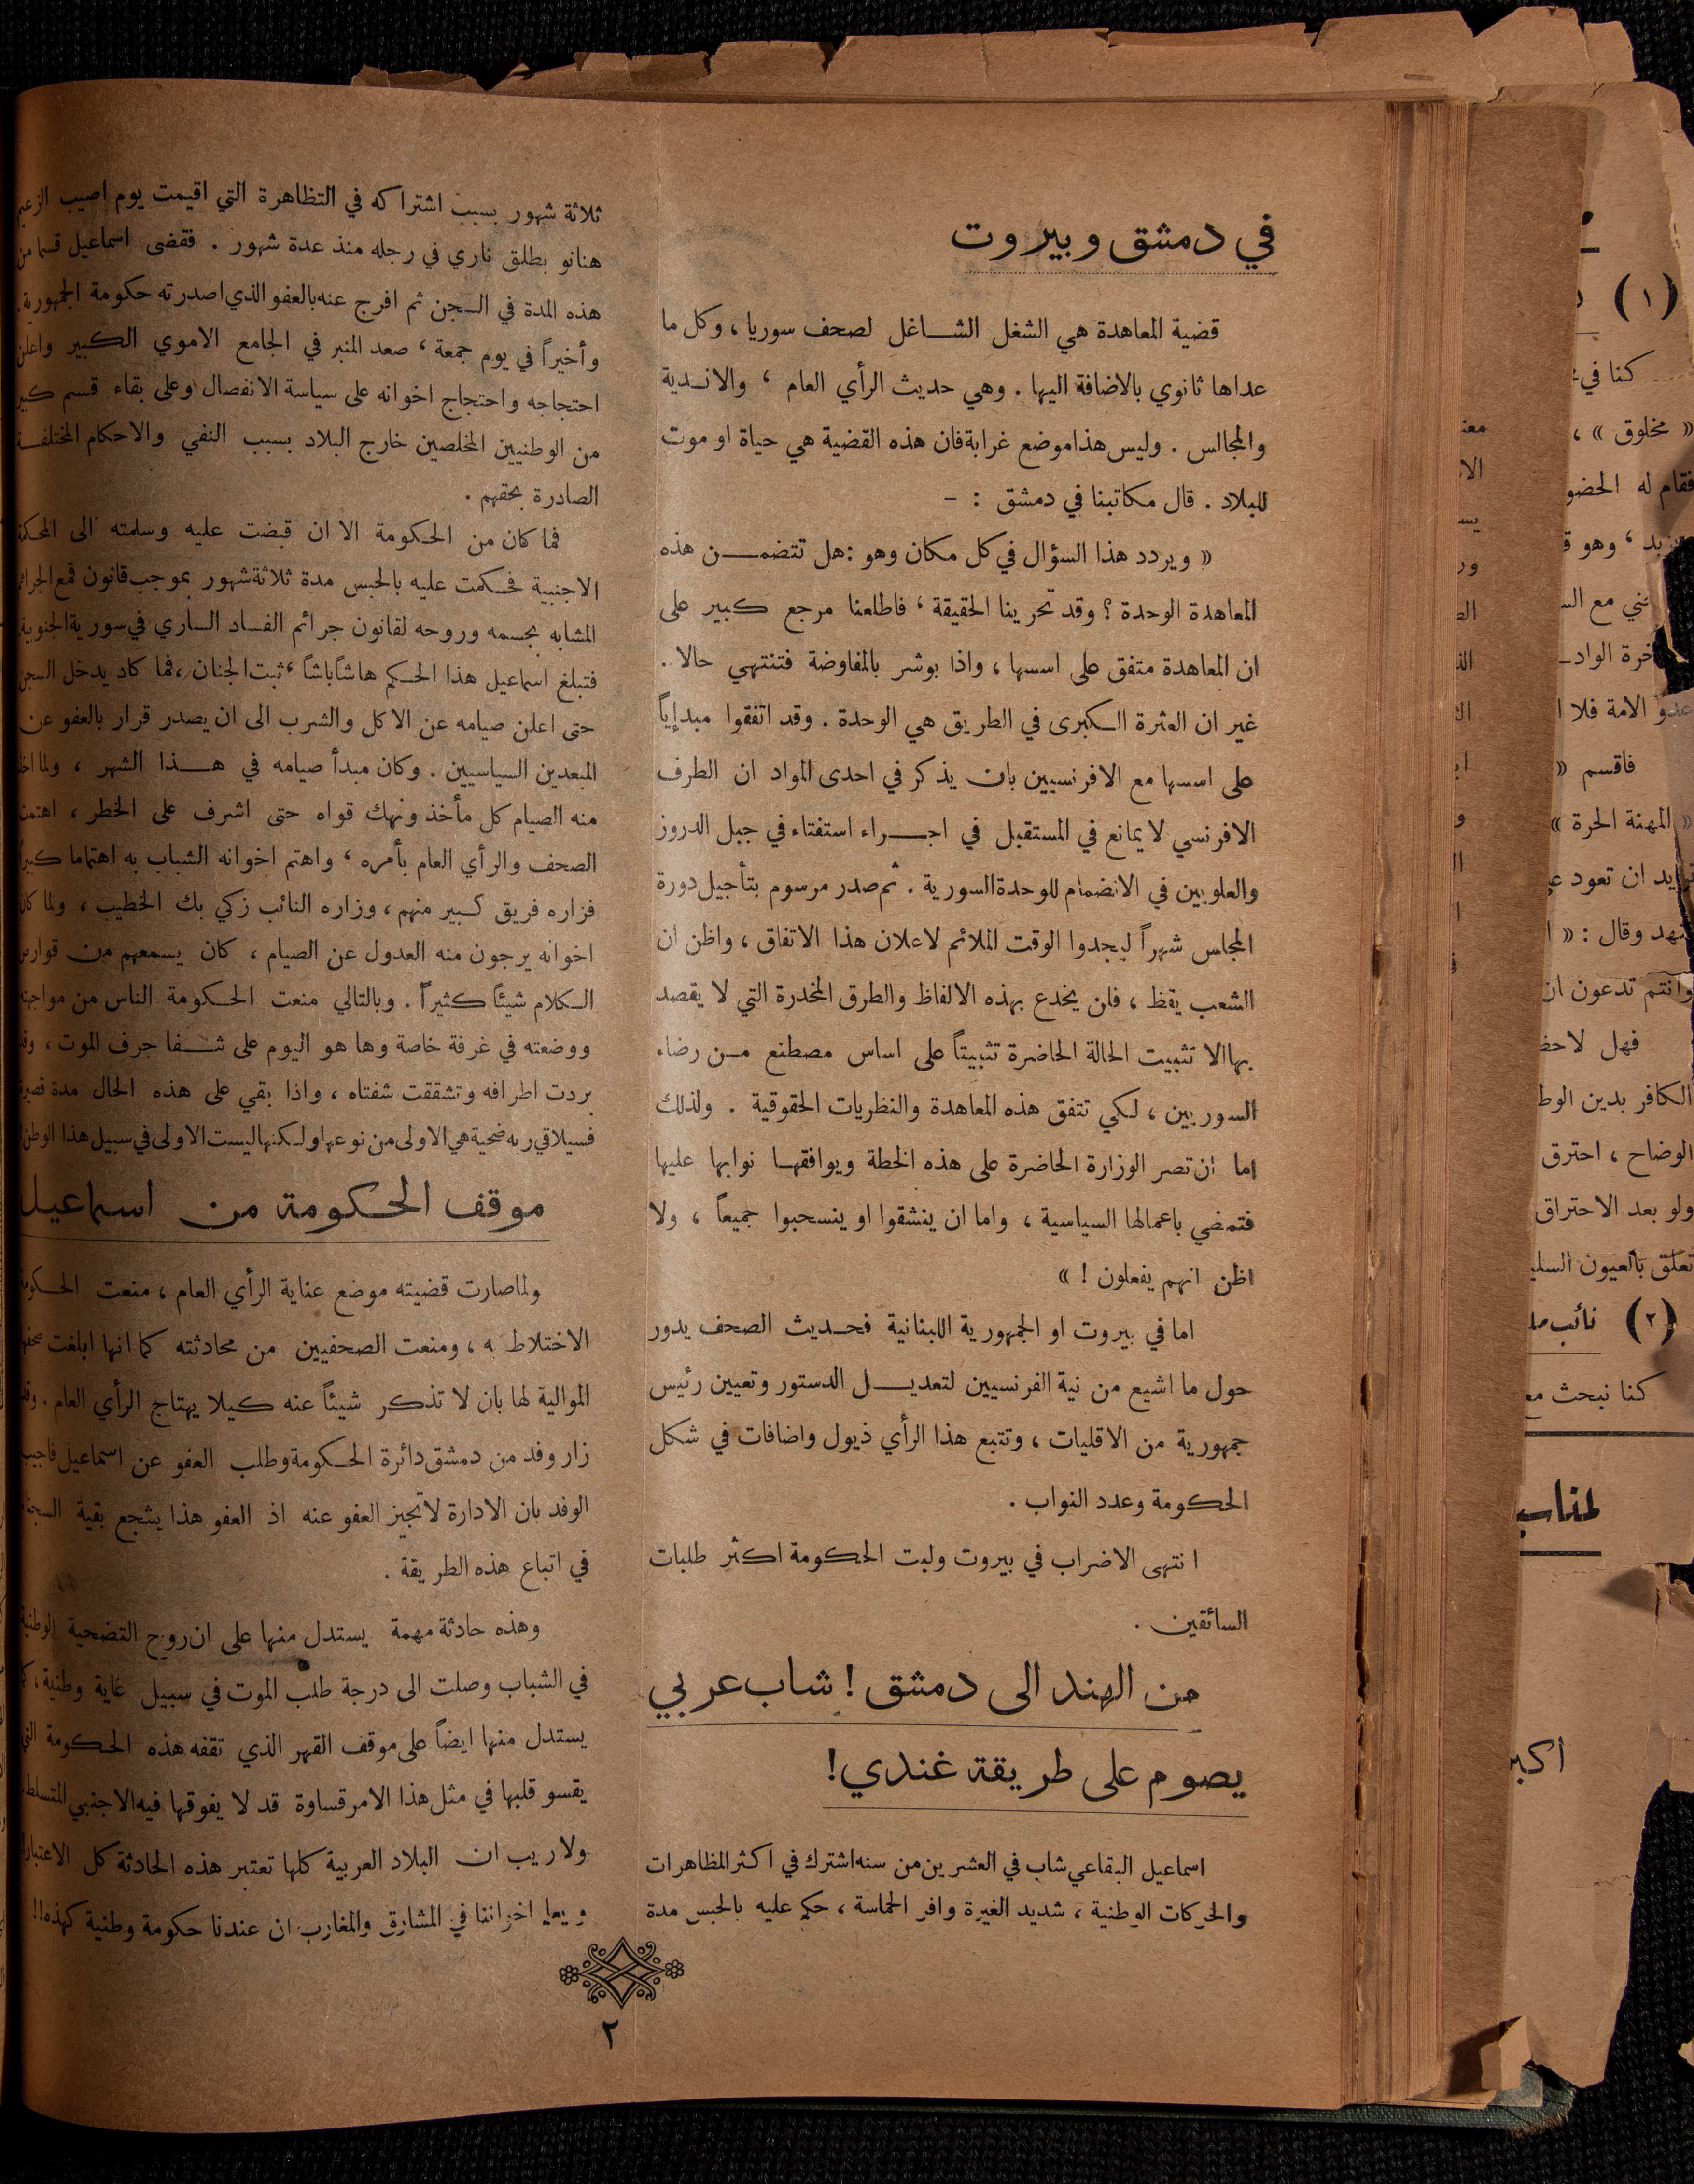 في دمشق وبيروت
قضية المعاهدة هي الشغل الشــاغل لصحف سوريا ، وكل ما
عداها ثانوي بالاضافة اليها . وهي حديث الرأي العام ، والانـدية
والمجالس . وليس هذا موضع غرابة فان هذه القضية هي حياة او موت
للبلاد . قال مكاتبنا في دمشق : –
« ويردد هذا السؤال في كل مكان وهو : هل تتضمــن هذه
المعاهدة الوحدة ؟ وقد تحرينا الحقيقة ، فاطلعنا مرجع كبير على
ان المعاهدة متفق على اسسها ، واذا بوشر بالمفاوضة فتنتهي حالا .
غير ان العثرة الكبرى في الطريق هي الوحدة . وقد اتفقوا مبدإياً
على اسسها مع الافرنسيين بان يذكر في احدى المواد ان الطرف
الافرنسي لا يمانع في المستقبل في اجــراء استفتاء في جبل الدروز
والعلويين في الانضمام للوحدة السورية . ثم صدر مرسوم بتأجيل دورة
المجلس شهراً ليجدوا الوقت الملائم لاعلان هذا الاتفاق ، واظن ان
الشعب يقظ ، فلن يخدع بهذه الالفاظ والطرق المخدرة التي لا يقصد
بها الا تثبيت الحالة الحاضرة تثبيتاً على اساس مصطنع مـن رضاء
السوريين ، لكي تتفق هذه المعاهدة والنظريات الحقوقية . ولذلك
اما ان تصر الوزارة الحاضرة على هذه الخطة ويوافقهـا نوابها عليها
فتمضي باعمالها السياسية ، واما ان ينشقوا او ينسحبوا جميعاً ، ولا
اظن انهم يفعلون ! »
اما في بيروت او الجمهورية اللبنانية فحـديث الصحف يدور
حول ما اشيع من نية الفرنسيين لتعديــل الدستور وتعيين رئيس
جمهورية من الاقليات ، وتتبع هذا الرأي ذيول واضافات في شكل
الحكومة وعدد النواب .
انتهى الاضراب في بيروت ولبت الحكومة اكثر طلبات
السائقين .
من الهند الى دمشق ! شاب عربي
يصوم على طريقة غندي !
اسماعيل البقاعي شاب في العشرين من سنه اشترك في اكثر المظاهرات
والحركات الوطنية ، شديد الغيرة وافر الحماسة ، حكم عليه بالحبس مدة
ثلاثة شهور بسبب اشتراكه في التظاهرة التي اقيمت يوم اصيب الزعيم
هنانو بطلق ناري في رجله منذ عدة شهور . فقضى اسماعيل قسما من
هذه المدة في السجن ثم افرج عنه بالعفو الذي اصدرته حكومة الجمهورية .
وأخيراً في يوم جمعة ، صعد المنبر في الجامع الاموي الكبير واعلن
احتجاجه واحتجاج اخوانه على سياسة الانفصال وعلى بقاء قسم كبير
من الوطنيين المخلصين خارج البلاد بسبب النفي والاحكام المختلفـة
الصادرة بحقهم .
فما كان من الحكومة الا ان قبضت عليه وسلمته الى المحكمة
الاجنبية فحكمت عليه بالحبس مدة ثلاثة شهور بموجب قانون قمع الجرائم
المشابه بجسمه وروحه لقانون جرائم الفساد الساري في سورية الجنوبية
فتبلغ اسماعيل هذا الحكم هاشاً باشاً ، ثبت الجنان ، فما كاد يدخل السجن
حتى اعلن صيامه عن الاكل والشرب الى ان يصدر قرار بالعفو عن
المبعدين السياسيين . وكان مبدأ صيامه في هــذا الشهر ، ولما
منه الصيام كل مأخذ ونهك قواه حتى اشرف على الخطر ، اهتمت
الصحف والرأي العام بأمره ، واهتم اخوانه الشباب به اهتماما كبيراً
فزاره فريق كبير منهم ، وزاره النائب زكي بك الخطيب ، ولما كان
اخوانه يرجون منه العدول عن الصيام ، كان يسمعهم من قوارص
الكلام شيئاً كثيراً . وبالتالي منعت الحكومة الناس من مواجهته
ووضعته في غرفة خاصة وها هو اليوم على شــفا جرف الموت ، وقد
بردت اطرافه وتشققت شفتاه ، واذا بقي على هذه الحال مدة قصيرة
فسيلاقي ربه ضحية هي الاولى من نوعها ولكنها ليست الاولى في سبيل هذا الوطن
موقف الحكومة من اسماعيل
ولما صارت قضيته موضع عناية الرأي العام ، منعت الحكومة
الاختلاط به ، ومنعت الصحفيين من محادثته كما انها ابلغت صحفها
الموالية لها بان لا تذكر شيئاً عنه كيلا يهتاج الرأي العام . وقد
زار وفد من دمشق دائرة الحكومة وطلب العفو عن اسماعيل فاجيب
الوفد بان الادارة لا تجيز العفو عنه اذ العفو هذا يشجع بقية السجناء
في اتباع هذه الطريقة .
وهذه حادثة مهمة يستدل منها على ان روح التضحية الوطنية
في الشباب وصلت الى درجة طلب الموت في سبيل غاية وطنية ،
يستدل منها ايضاً على موقف القهر الذي تقفه هذه الحكومة التي
يقسو قلبها في مثل هذا الامر قساوة قد لا يفوقها فيه الاجنبي المتسلط .
ولا ريب ان البلاد العربية كلها تعتبر هذه الحادثة كل الاعتبار
ويعلم اخواننا في المشارق والمغارب ان عندنا حكومة وطنية كهذه !!
٢
(١)
كنا في
« مخلوق » ،
فقام له الحضو
، وهو
عدو الامة فلا
فاقسم «
« المهنة الحرة »
ان تعود
وقال : «
وانتم تدعون ان
فهل لاحظ
الكافر بدين الوط
الوضاح ، احترق
ولو بعد الاحتراق
تعلق بالعيون السلي
(٢) نائب
كنا نبحث
لمناسب
اكبر